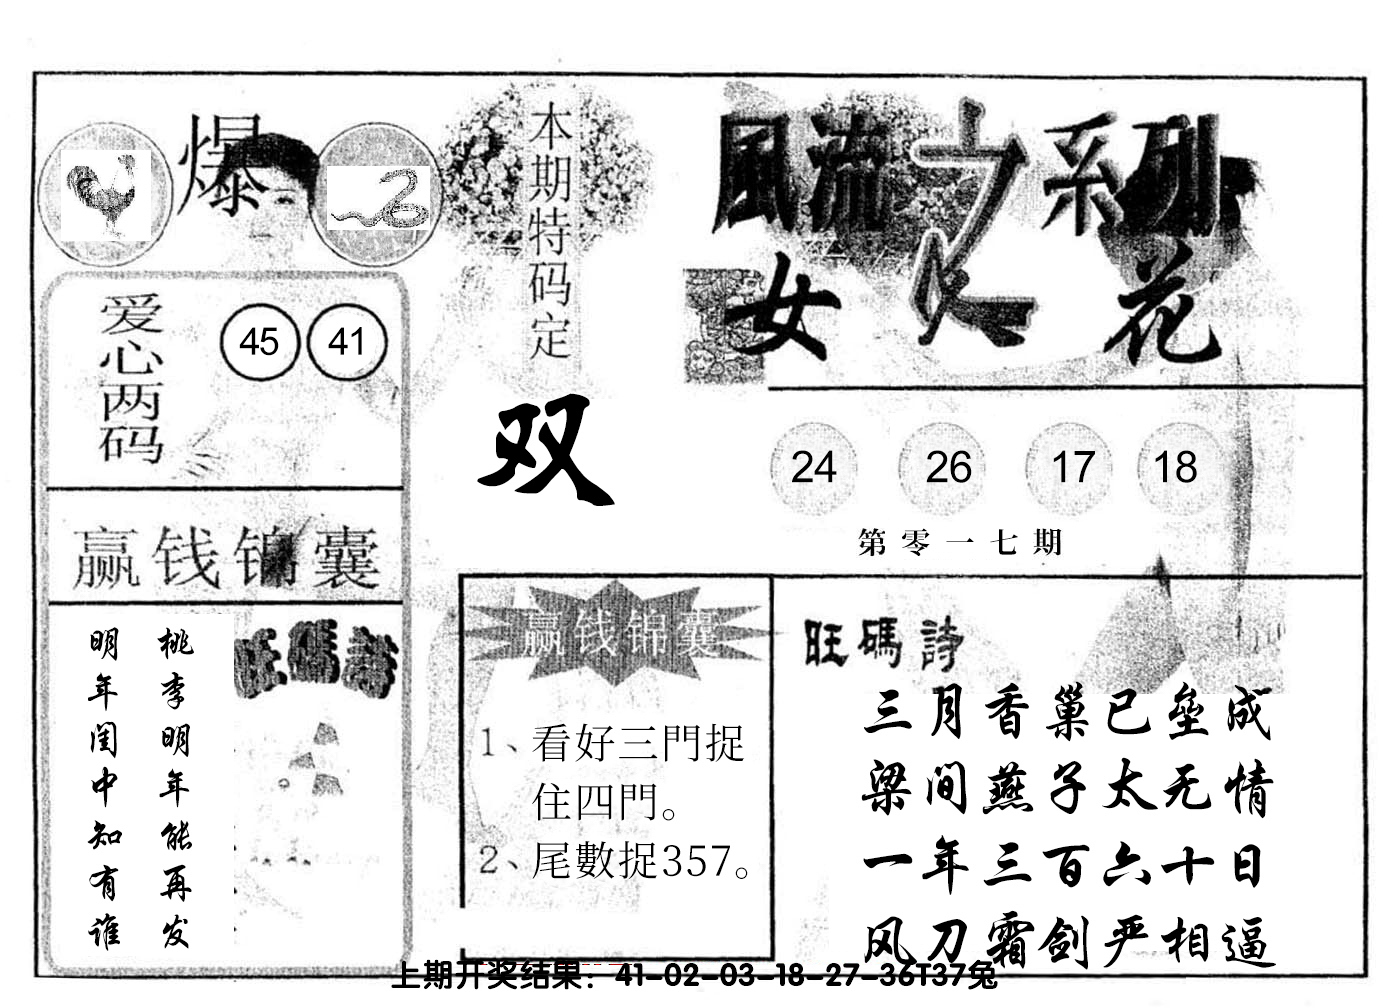 爆
爱心两码
45 41
赢钱锦囊
桃李明年能再发
明年闺中知有谁
旺碼詩
本期特码定
双
風流之系列
女人花
24 26 17 18
第零一七期
赢钱锦囊
1、看好三門捉
住四門。
2、尾數捉357。
旺碼詩
三月香巢已垒成
梁间燕子太无情
一年三百六十日
风刀霜剑严相逼
上期开奖结果：41-02-03-18-27-36T37兔